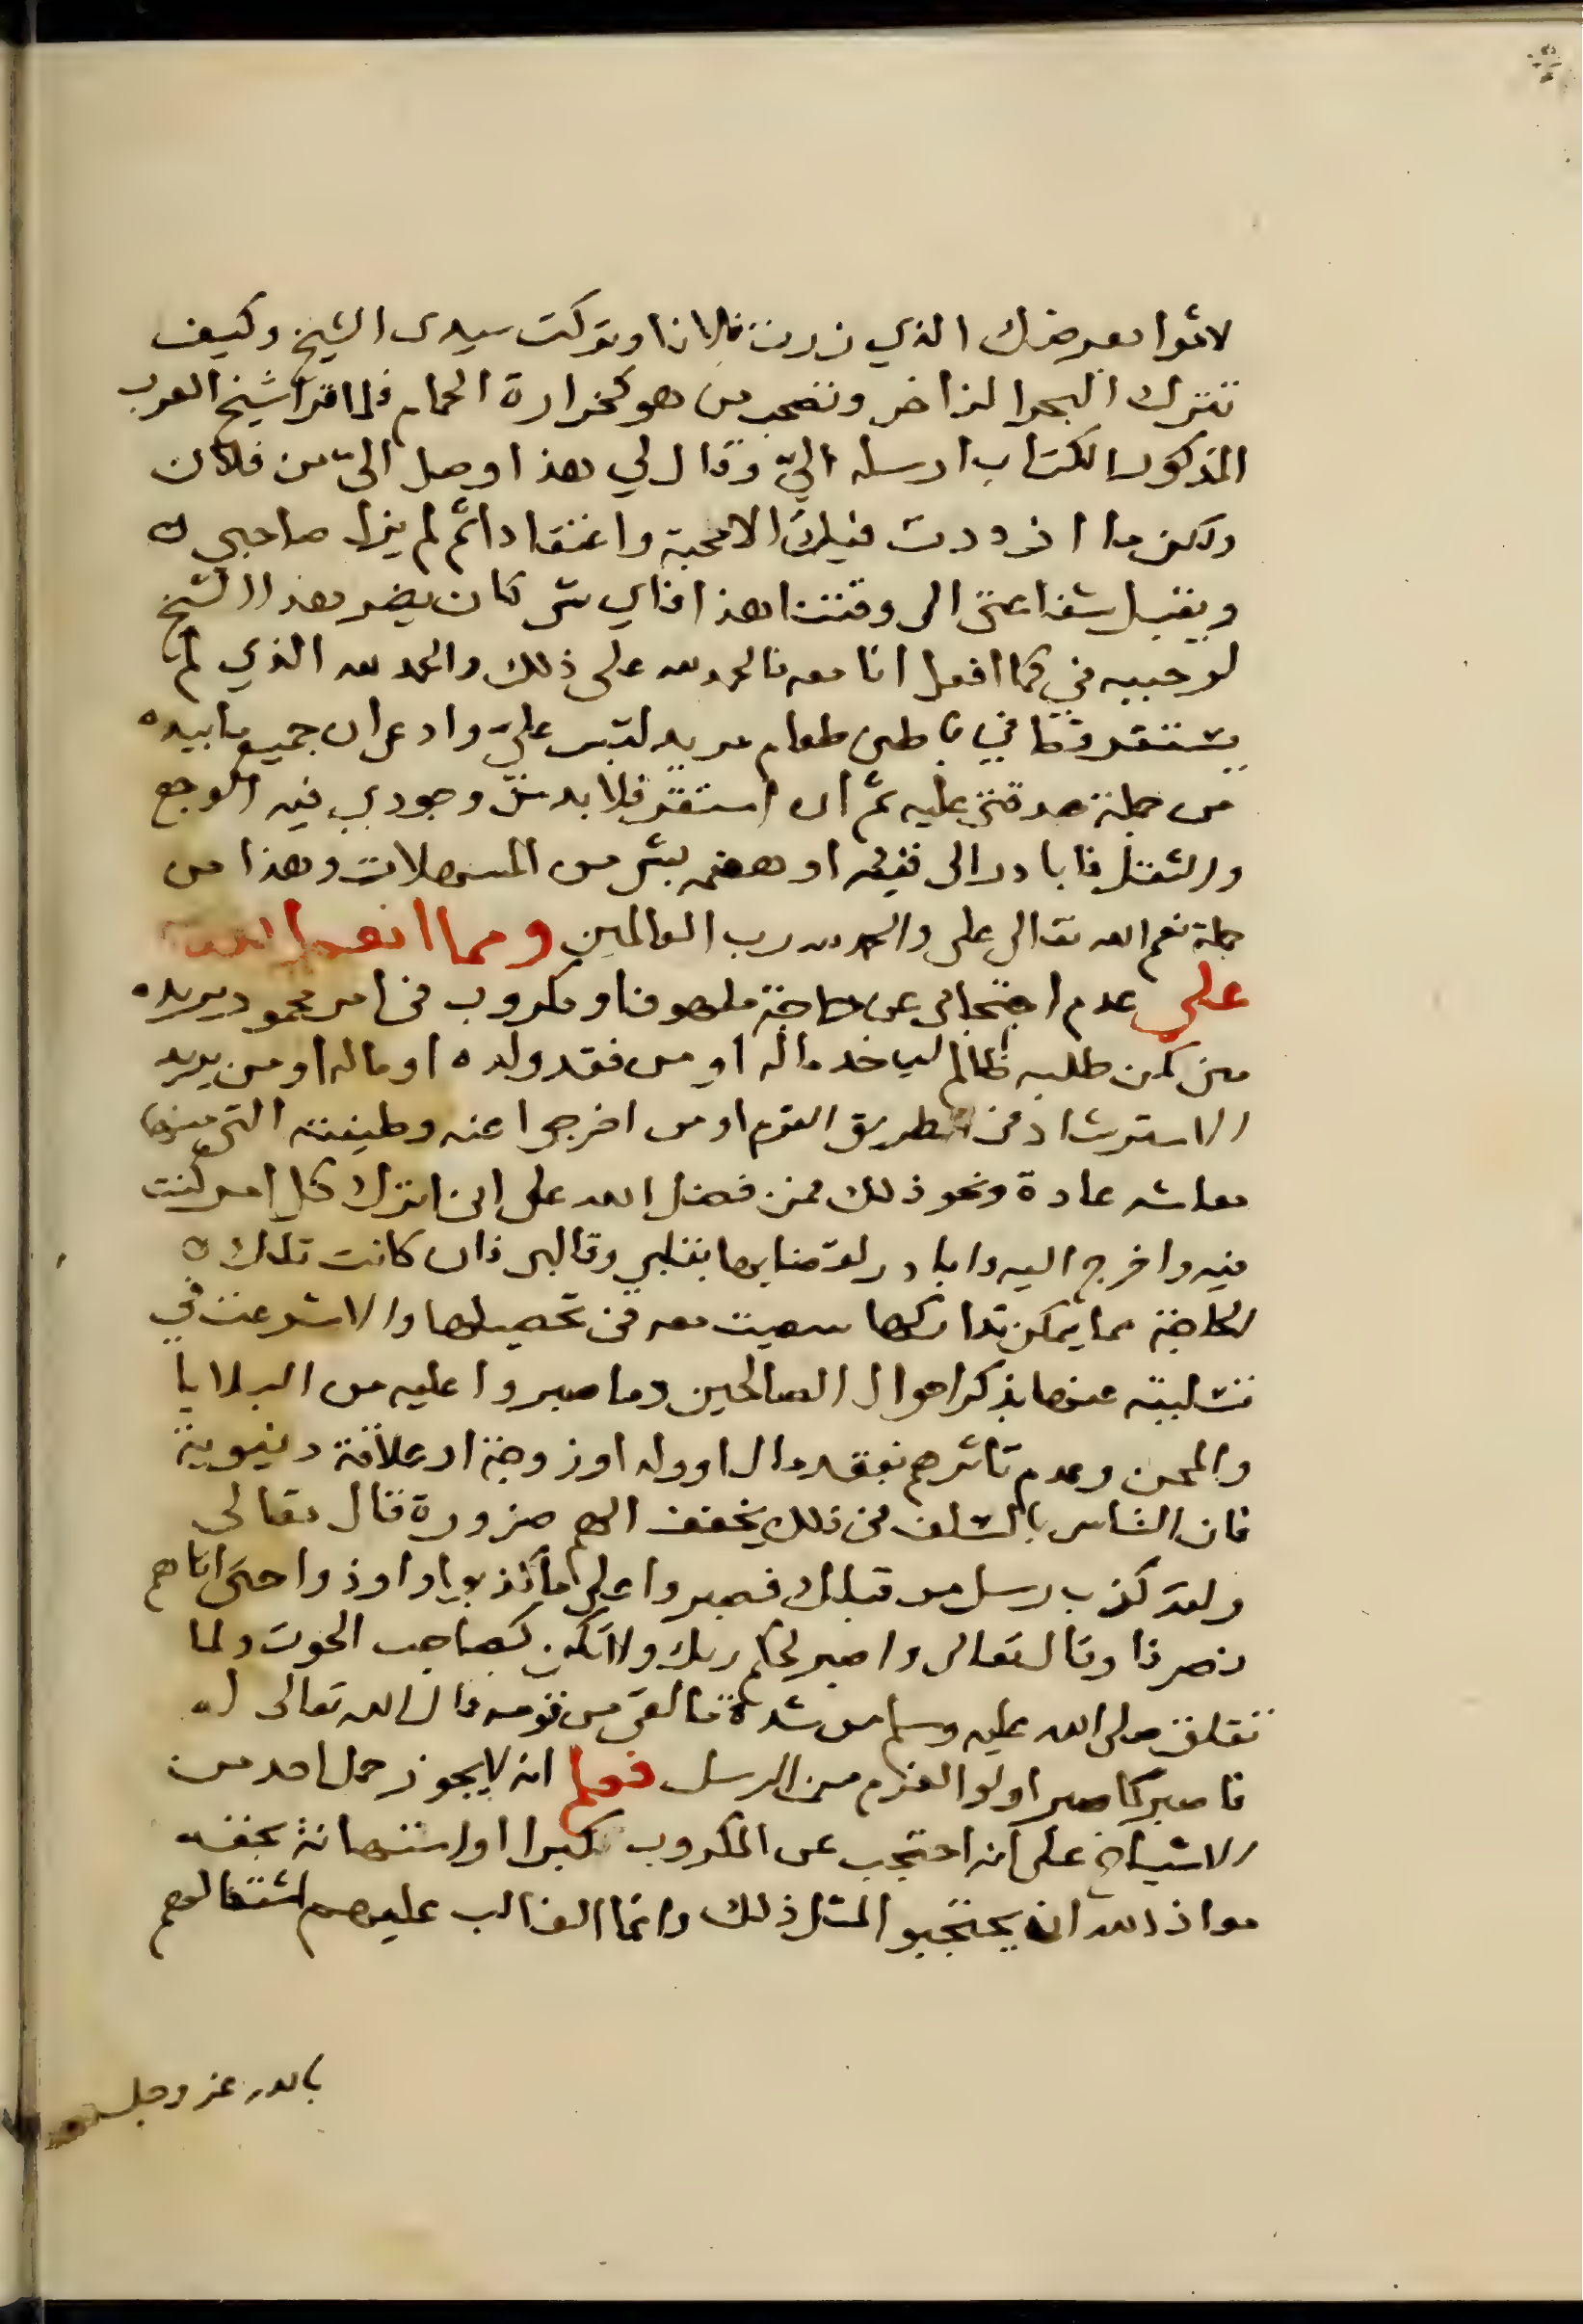 لاموا بعرضك الذي زرت فلانا وتركت سيدى الشيخ وكيف
تترك البحر الزاخر وتصحب من هو كخرارة الحمام فلما قرا شيخ العرب
المذكور الكتاب ارسله اليّ وقال لي هذا وصل اليّ من فلان
ولكن ما ازددت فيك الا محبة واعتقادا ثم لم يزل صاحبي
ويقبل شفاعتى الى وقتنا هذا فاي شى كان يضر هذا الشيخ
لو حببه في كما افعل انا معه فالحمد لله على ذلك والحمد لله الذي لم
يستقر وقتا في باطنى طعام مريد لتبس عليّ وادعى ان جميع ما بيده
من جملة صدقتى عليه ثم ان استقر فلا بد من وجودي فيه الوجع
والثقل فابادر الى قيئه او هضمه بشى من المسهلات وهذا من
جملة نعم الله تعالى على والحمد لله رب العالمين ومما انعم الله
على عدم احتجابى عن حاجة ملهوف او مكروب في امر محمود يريده
منى كمن طلبه ظالم لياخذ ماله او من فقد ولده او ماله او من يريد
الاسترشاد في طريق القوم او من اخرجوا عنه وظيفته التى منها
معاشه عادة ونحو ذلك فمن فضل الله على انى اترك كل امر كنت
فيه واخرج اليه وابادر لقضايها بقلبي وقالبى فان كانت تلك
الحاجة مما يمكن تداركها سعيت معه في تحصيلها والا شرعت في
تسليته عنها بذكر احوال الصالحين وما صبروا عليه من البلايا
والمحن وعدم تاثرهم بفقد مال او ولد او زوجة او علاقة دنيوية
فان التاسى بالسلف في ذلك يخفف الهم ضرورة قال تعالى
ولقد كذب رسل من قبلك فصبروا على ما كذبوا واوذوا حتى اتاهم
نصرنا وقال تعالى واصبر لحكم ربك ولا تكن كصاحب الحوت ولما
تقلق صلى الله عليه وسلم من شدة ما لقى من قومه قال الله تعالى له
فاصبر كما صبر اولوا العزم من الرسل فعلم انه لا يجوز حمل احد من
الاشياخ على انه احتجب عن المكروب كبرا او استهانة بحقه
معاذ الله ان يحتجبوا لمثل ذلك وانما الغالب عليهم اشتغالهم
بالله عز وجل